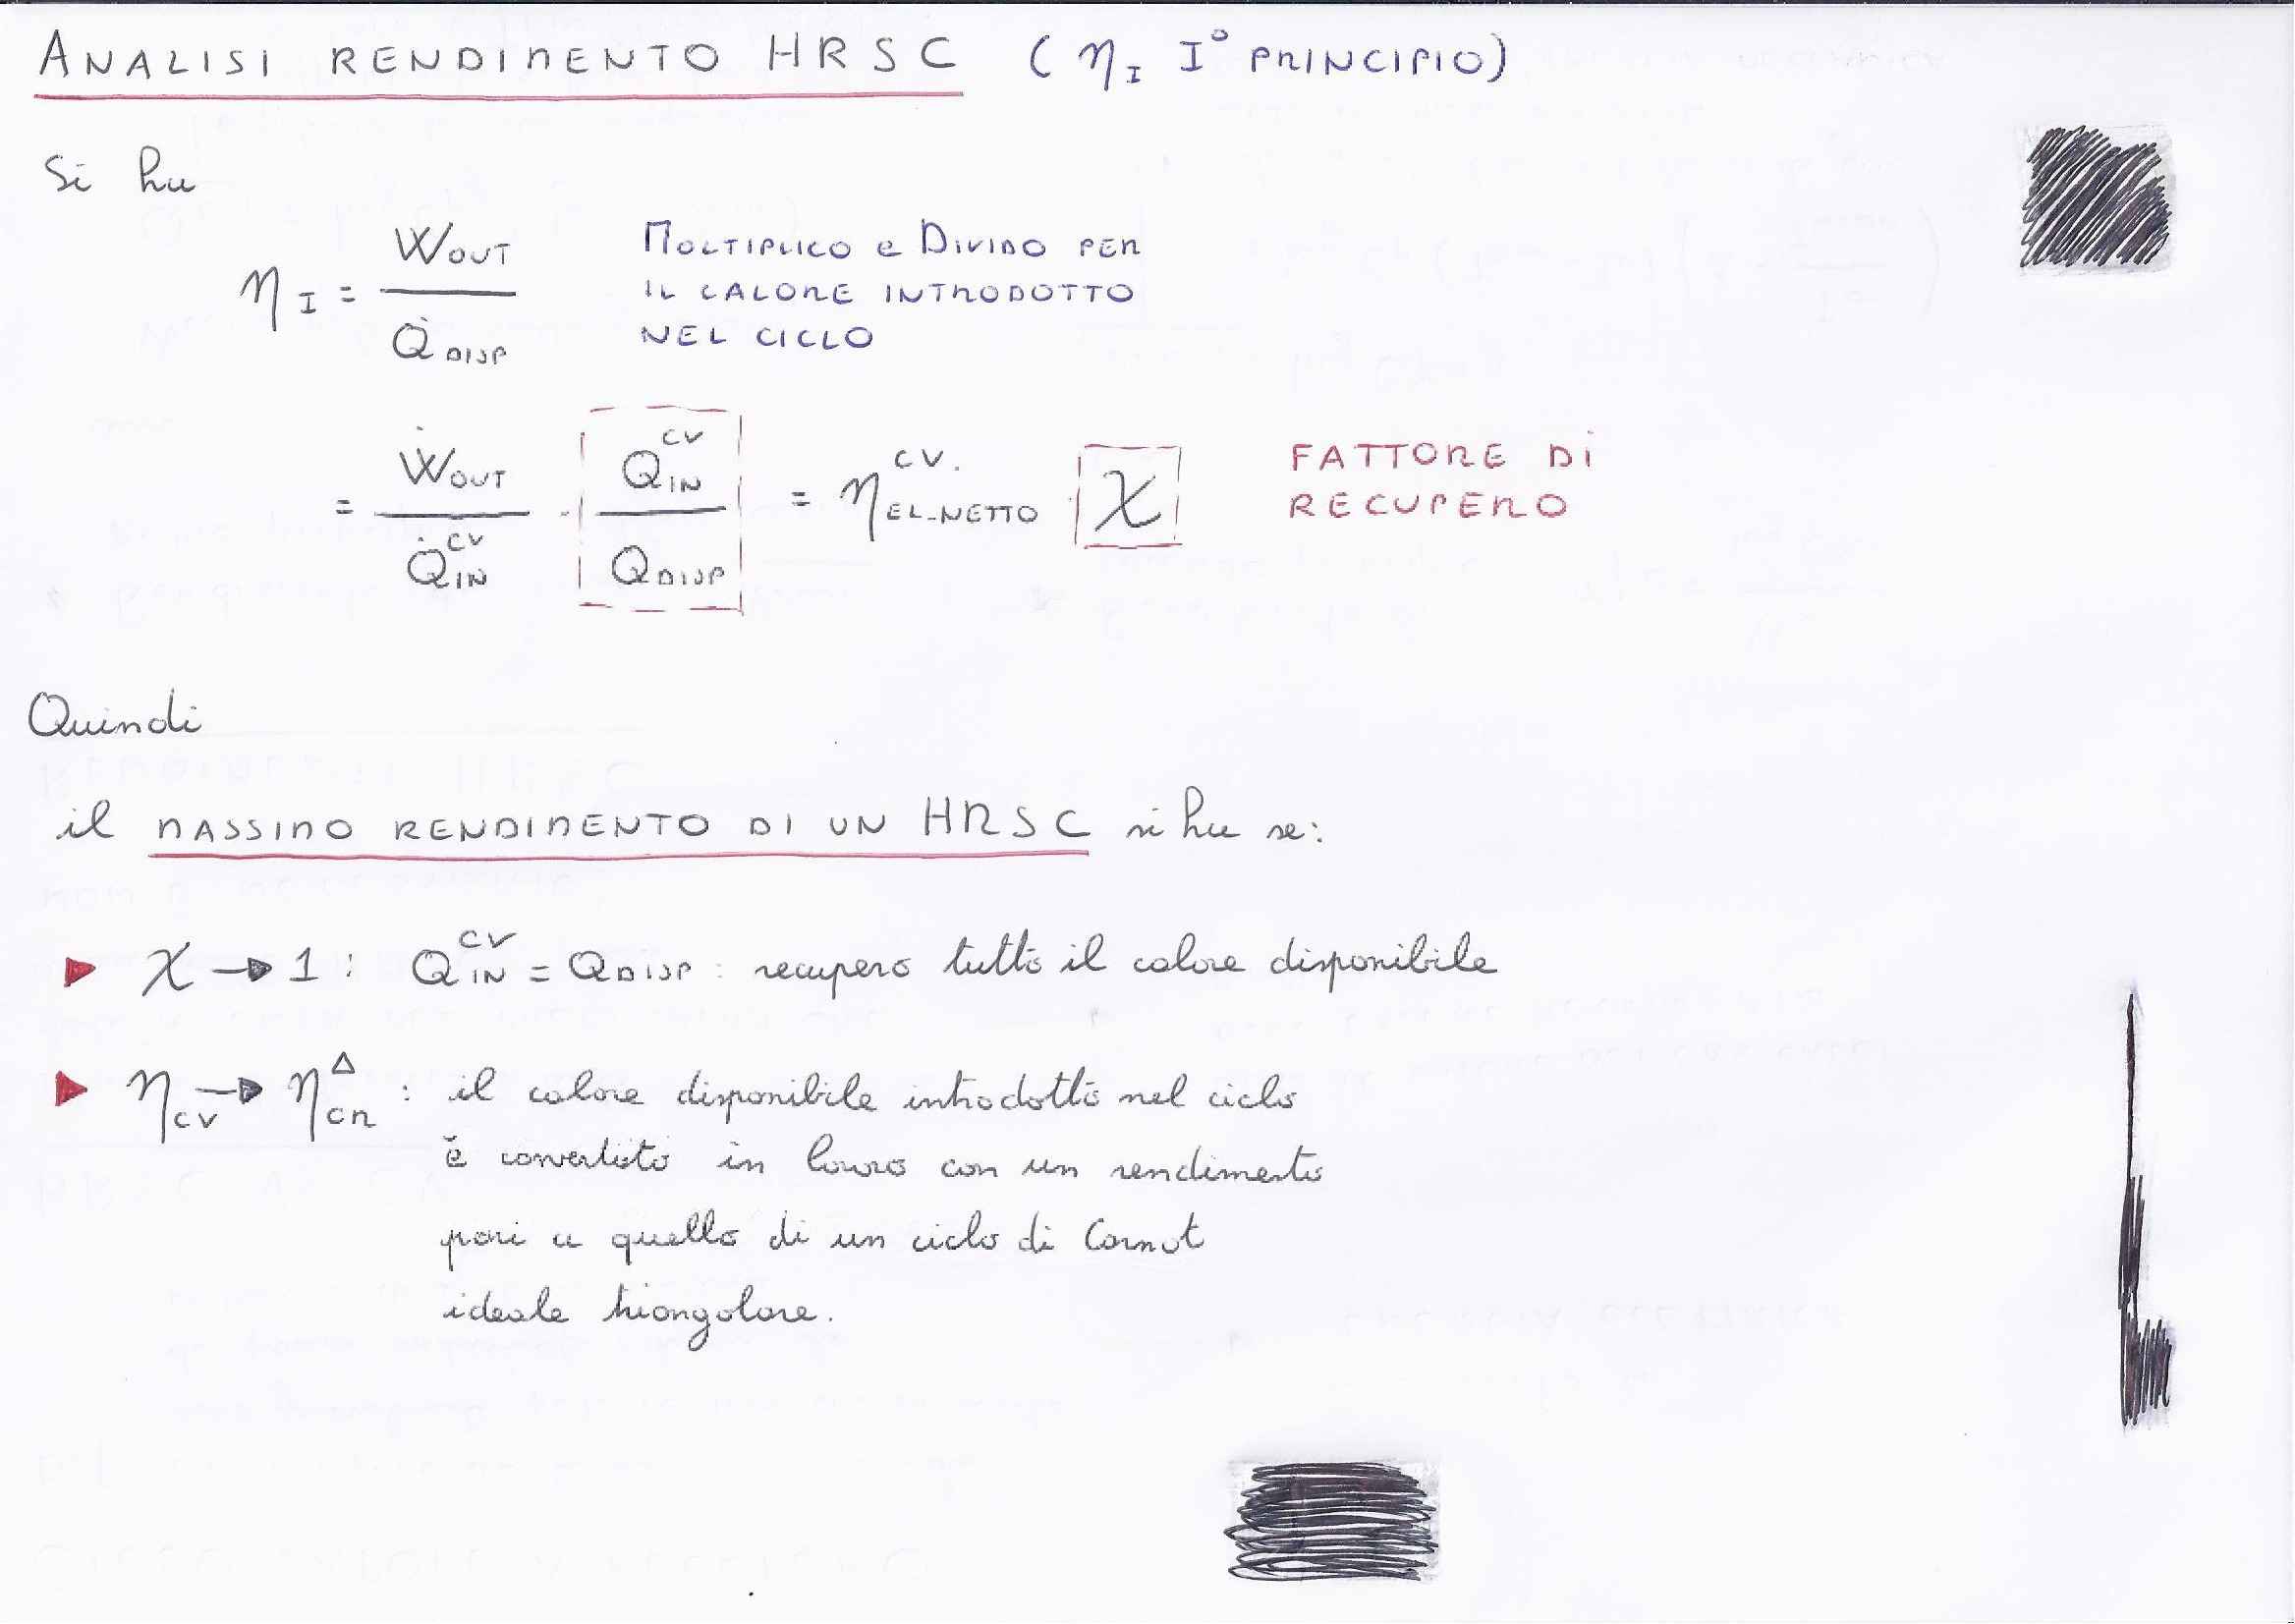 ANALISI RENDIMENTO HRSC (η_I I° PRINCIPIO)
Si ha
η_I = Ẇ_OUT / Q̇_DISP
MOLTIPLICO e DIVIDO PER
IL CALORE INTRODOTTO
NEL CICLO
= Ẇ_OUT / Q̇_IN^CV · Q_IN^CV / Q_DISP = η_EL-NETTO^CV. · χ
FATTORE Di
RECUPERO
Quindi
il MASSIMO RENDIMENTO DI UN HRSC si ha se:
▶ χ → 1 : Q_IN^CV = Q_DISP : recupero tutto il calore disponibile
▶ η_CV → η_CR^Δ : il calore disponibile introdotto nel ciclo
è convertito in lavoro con un rendimento
pari a quello di un ciclo di Carnot
ideale triangolare.